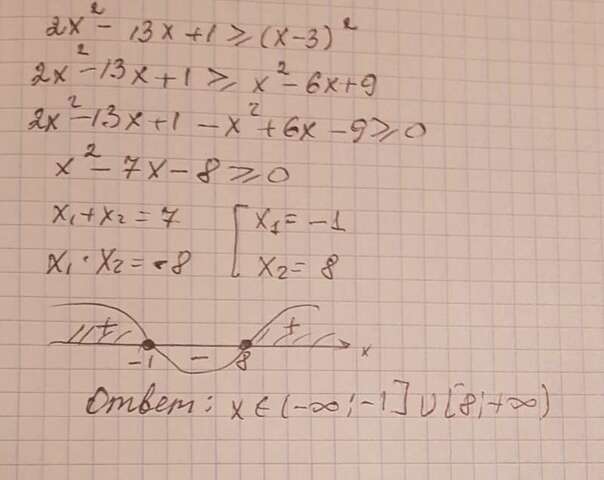 2x² - 13x + 1 ≥ (x-3)²
2x² - 13x + 1 ≥ x² - 6x + 9
2x² - 13x + 1 - x² + 6x - 9 ≥ 0
x² - 7x - 8 ≥ 0
x₁ + x₂ = 7 [ x₁ = -1
x₁ · x₂ = -8 x₂ = 8
+ - + x
-1 8
Ответ: x ∈ (-∞; -1] ∪ [8; +∞)